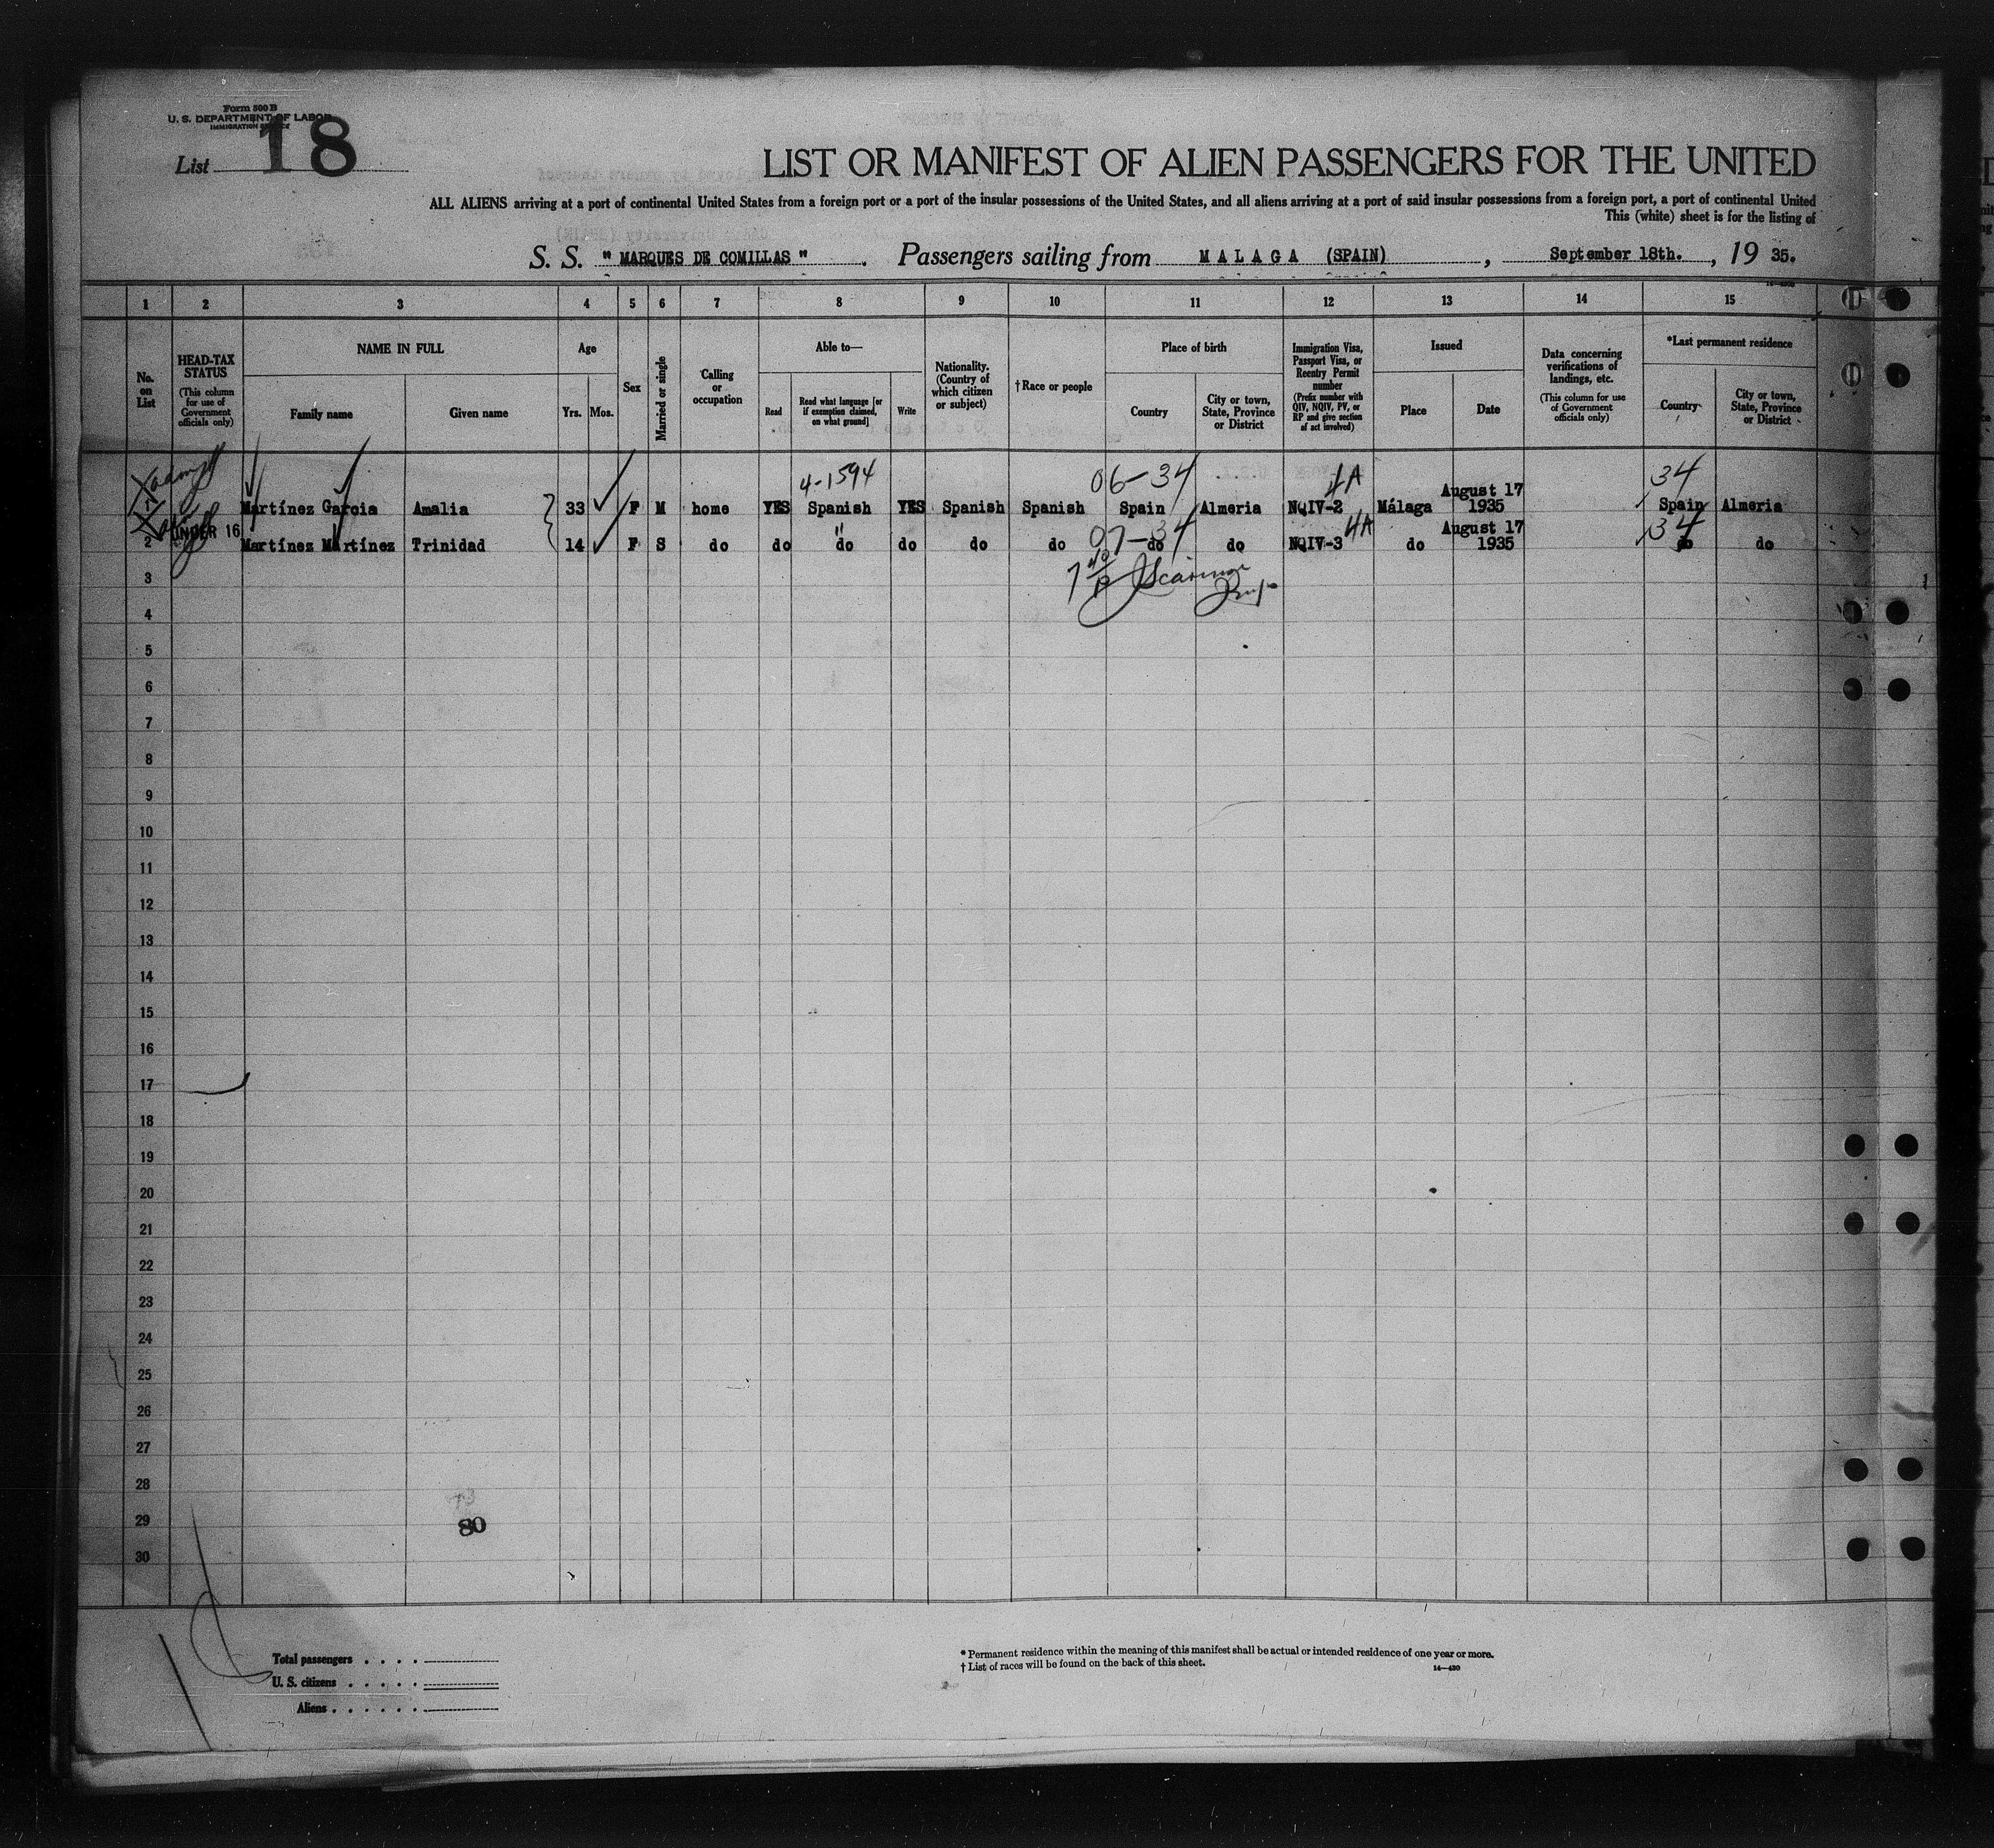 Form 500 B
U. S. DEPARTMENT OF LABOR
IMMIGRATION SERVICE
List 18
LIST OR MANIFEST OF ALIEN PASSENGERS FOR THE UNITED
ALL ALIENS arriving at a port of continental United States from a foreign port or a port of the insular possessions of the United States, and all aliens arriving at a port of said insular possessions from a foreign port, a port of continental United
This (white) sheet is for the listing of
S. S. " MARQUES DE COMILLAS " . Passengers sailing from M A L A G A (SPAIN) , September 18th. , 19 35.
1 2 3 4 5 6 7 8 9 10 11 12 13 14 15
No. on List
HEAD-TAX STATUS (This column for use of Government officials only)
NAME IN FULL
Family name Given name
Age
Yrs. Mos.
Sex
Married or single
Calling or occupation
Able to—
Read Read what language [or if exemption claimed, on what ground] Write
Nationality. (Country of which citizen or subject)
† Race or people
Place of birth
Country City or town, State, Province or District
Immigration Visa, Passport Visa, or Reentry Permit number (Prefix number with QIV, NQIV, PV, or RP and give section of act involved)
Issued
Place Date
Data concerning verifications of landings, etc. (This column for use of Government officials only)
*Last permanent residence
Country City or town, State, Province or District
4-1594 06-34 4A 34
1 Martínez Garcia Amalia 33 F M home YES Spanish YES Spanish Spanish Spain Almeria NQIV-2 Málaga August 17 1935 Spain Almeria
UNDER 16 " 07-34 4A 34
2 Martínez Martínez Trinidad 14 F S do do do do do do do do NQIV-3 do August 17 1935 do do
3
4
5
6
7
8
9
10
11
12
13
14
15
16
17
18
19
20
21
22
23
24
25
26
27
28
29
30
80
Total passengers . . . .
U. S. citizens . . . . .
Aliens . . . . . .
* Permanent residence within the meaning of this manifest shall be actual or intended residence of one year or more.
† List of races will be found on the back of this sheet.
14—430